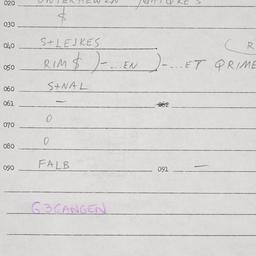 020
030 $
040 S+LEJKES
050 RIM $ )-...EN )-...ET QRIME
060 S+NAL
061 — 062
070 0
080 0
090 FALB 091 —
G3CANGEN